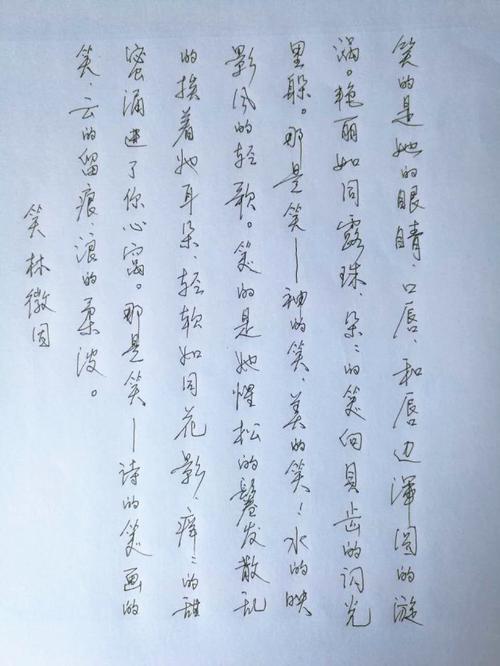 笑的是她的眼睛、口唇、和唇边浑圆的漩
涡。艳丽如同露珠、朵〻的笑向贝齿的闪光
里躲。那是笑——神的笑、美的笑！水的映
影风的轻歌。笑的是她惺松的鬈发散乱
的挨着她耳朵、轻软如同花影，痒〻的甜
蜜涌进了你心窝。那是笑——诗的笑画的
笑、云的留痕、浪的柔波。
笑 林徽因